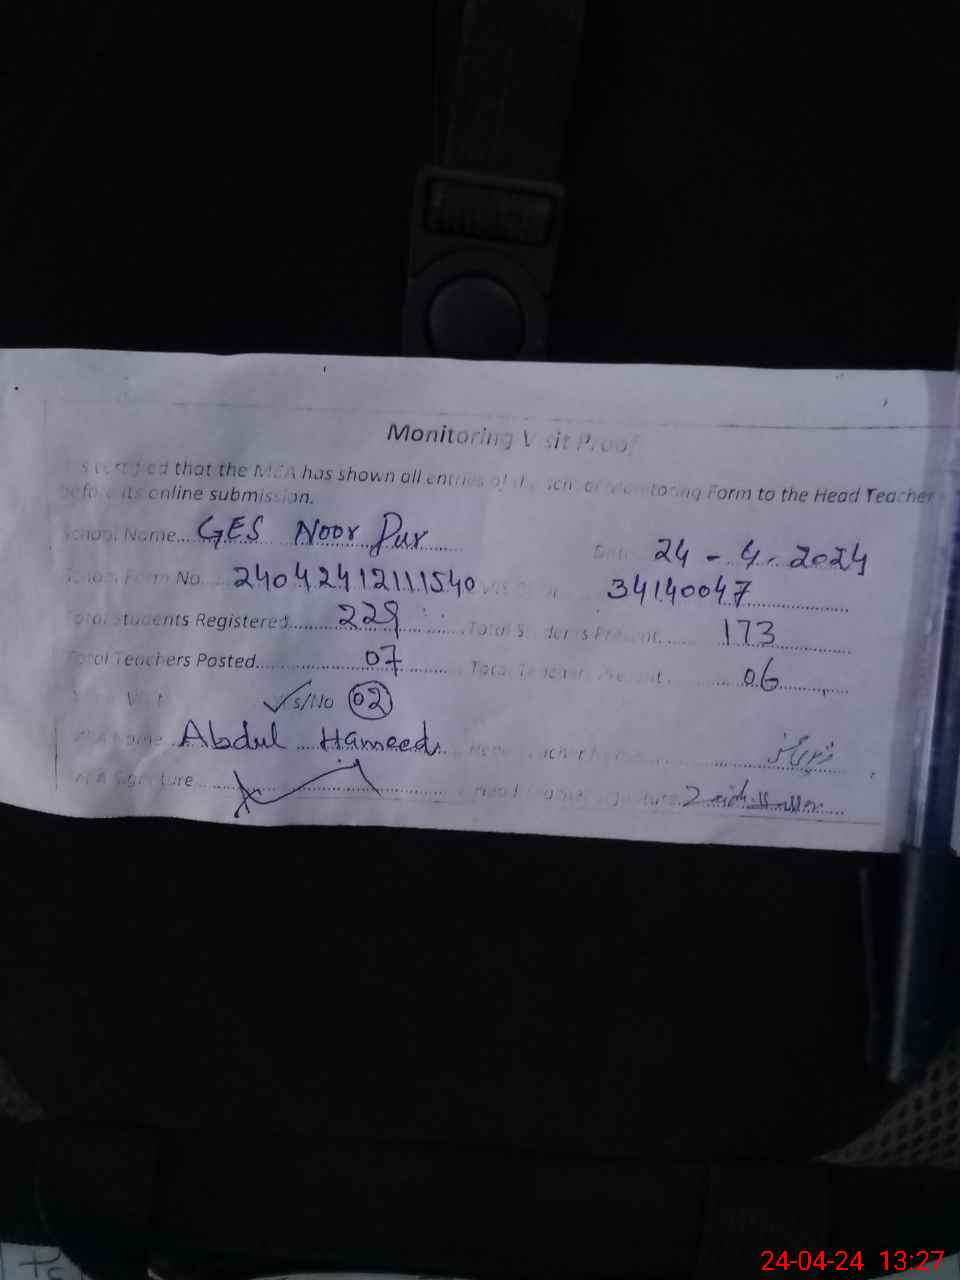 Monitoring Visit Proof
certified that the MEA has shown all entries of the school Monitoring Form to the Head Teacher
before its online submission.
School Name... GES Noor Pur
Date 24-4-2024
School Form No. 240424121111540
34140047
Total Students Registered 229 Total Students Present 173
Total Teachers Posted 07 Total Teachers Present 06
s/No 02
MEA Name Abdul Hameed Head Teacher
MEA Signature Head Teacher Signature
24-04-24 13:27